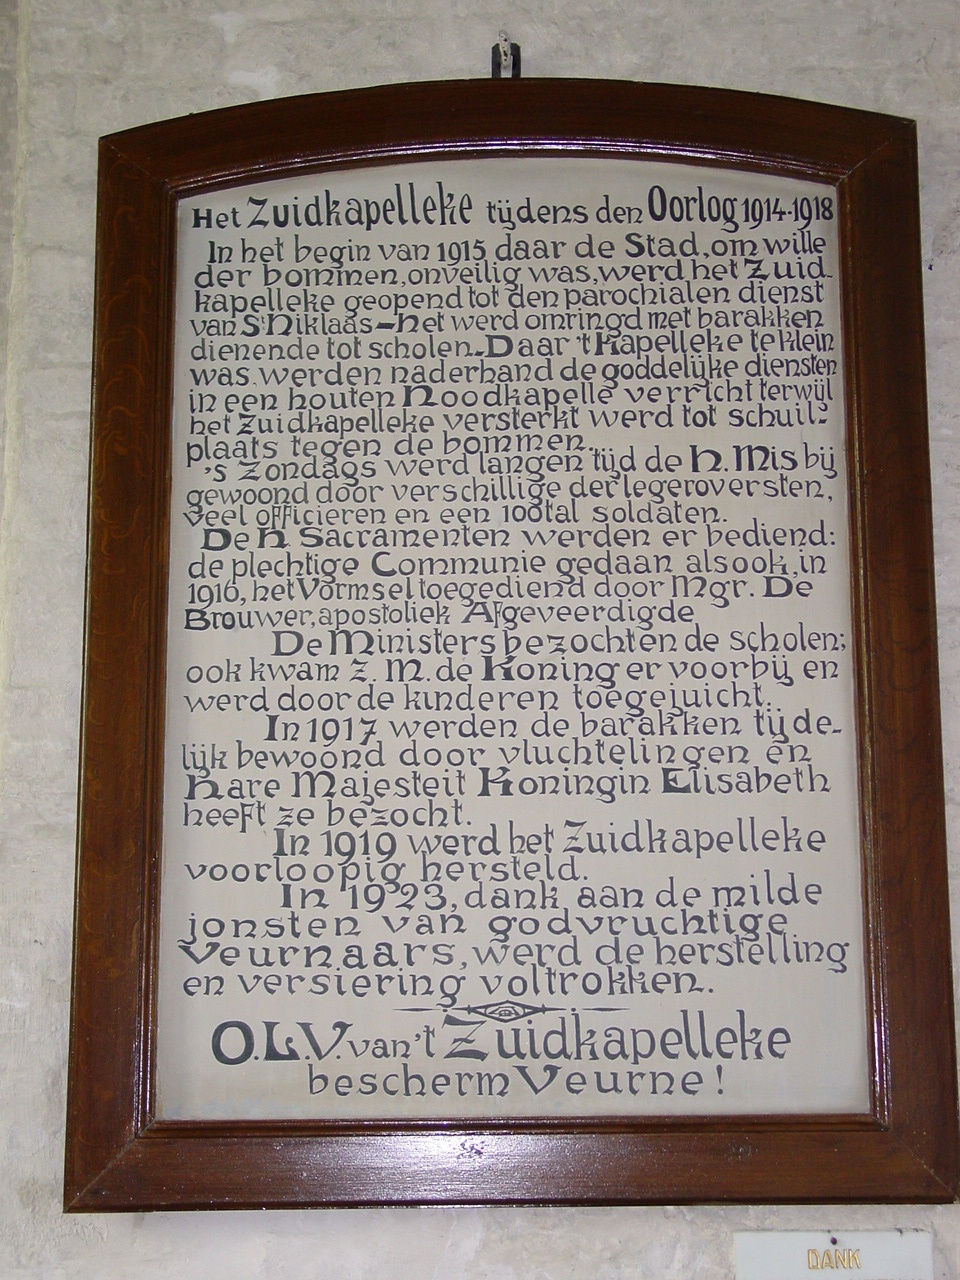 Het Zuidkapelleke tijdens den Oorlog 1914-1918
In het begin van 1915 daar de Stad, om wille
der bommen, onveilig was, werd het Zuid-
kapelleke geopend tot den parochialen dienst
van St Niklaas - het werd omringd met barakken
dienende tot scholen. Daar 't Kapelleke te klein
was, werden naderhand de goddelijke diensten
in een houten Noodkapelle verricht terwijl
het Zuidkapelleke versterkt werd tot schuil-
plaats tegen de bommen.
's Zondags werd langen tijd de H. Mis bij
gewoond door verschillige der legeroversten,
veel officieren en een 100tal soldaten.
De H. Sacramenten werden er bediend:
de plechtige Communie gedaan alsook, in
1916, het Vormsel toegediend door Mgr. De
Brouwer, apostoliek Afgeveerdigde
De Ministers bezochten de scholen;
ook kwam Z. M. de Koning er voorbij en
werd door de kinderen toegejuicht.
In 1917 werden de barakken tijde-
lijk bewoond door vluchtelingen en
Hare Majesteit Koningin Elisabeth
heeft ze bezocht.
In 1919 werd het Zuidkapelleke
voorloopig hersteld.
In 1923, dank aan de milde
jonsten van godvruchtige
Veurnaars, werd de herstelling
en versiering voltrokken.
O.L.V. van 't Zuidkapelleke
bescherm Veurne!
DANK